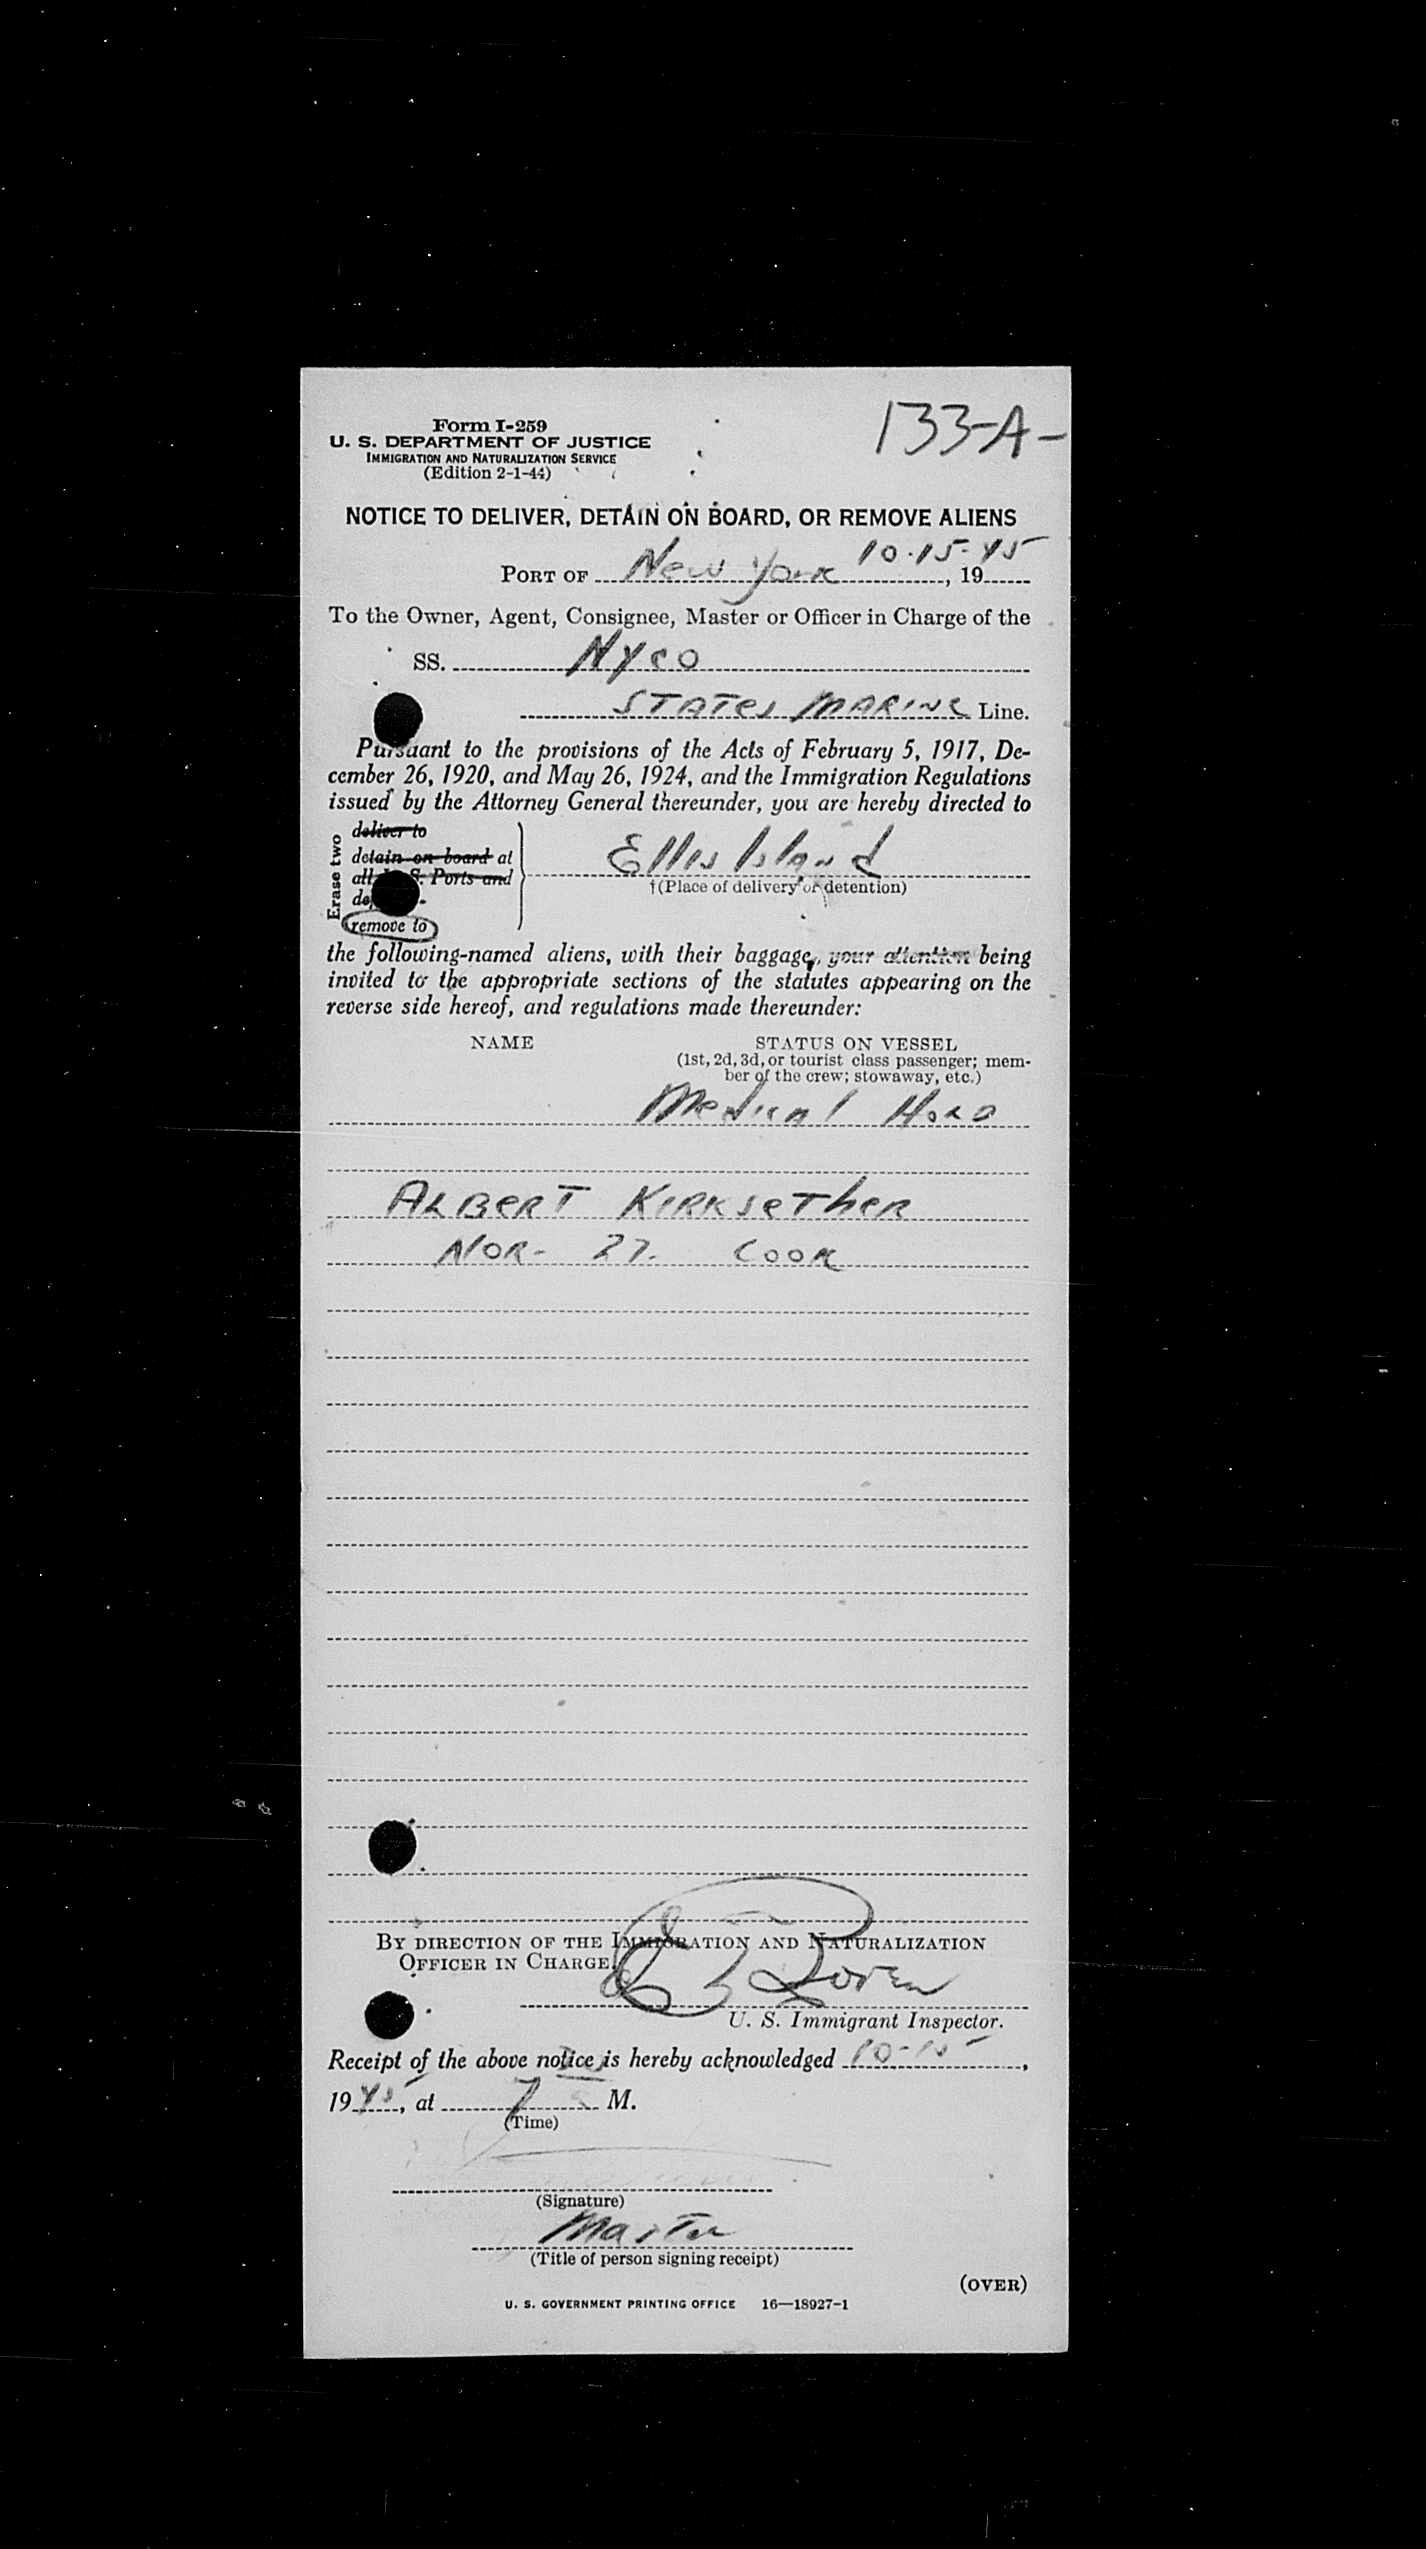 133-A-
Form I-259
U. S. DEPARTMENT OF JUSTICE
IMMIGRATION AND NATURALIZATION SERVICE
(Edition 2-1-44)
NOTICE TO DELIVER, DETAIN ON BOARD, OR REMOVE ALIENS
10-15-45
PORT OF New York, 19
To the Owner, Agent, Consignee, Master or Officer in Charge of the
SS. Nyco
STATES MARINE Line.
Pursuant to the provisions of the Acts of February 5, 1917, De-
cember 26, 1920, and May 26, 1924, and the Immigration Regulations
issued by the Attorney General thereunder, you are hereby directed to
Erase two
deliver to
detain on board at
all U. S. Ports and
remove to
Ellis Island
†(Place of delivery or detention)
the following-named aliens, with their baggage, your attention being
invited to the appropriate sections of the statutes appearing on the
reverse side hereof, and regulations made thereunder:
NAME STATUS ON VESSEL
(1st, 2d, 3d, or tourist class passenger; mem-
ber of the crew; stowaway, etc.)
Medical Hold
ALBERT KIRKSETHER
NOR- 27. COOK
BY DIRECTION OF THE IMMIGRATION AND NATURALIZATION
OFFICER IN CHARGE.
U. S. Immigrant Inspector.
Receipt of the above notice is hereby acknowledged 10-15,
1945, at 7 M.
(Time)
(Signature)
Master
(Title of person signing receipt)
(OVER)
U. S. GOVERNMENT PRINTING OFFICE 16—18927-1